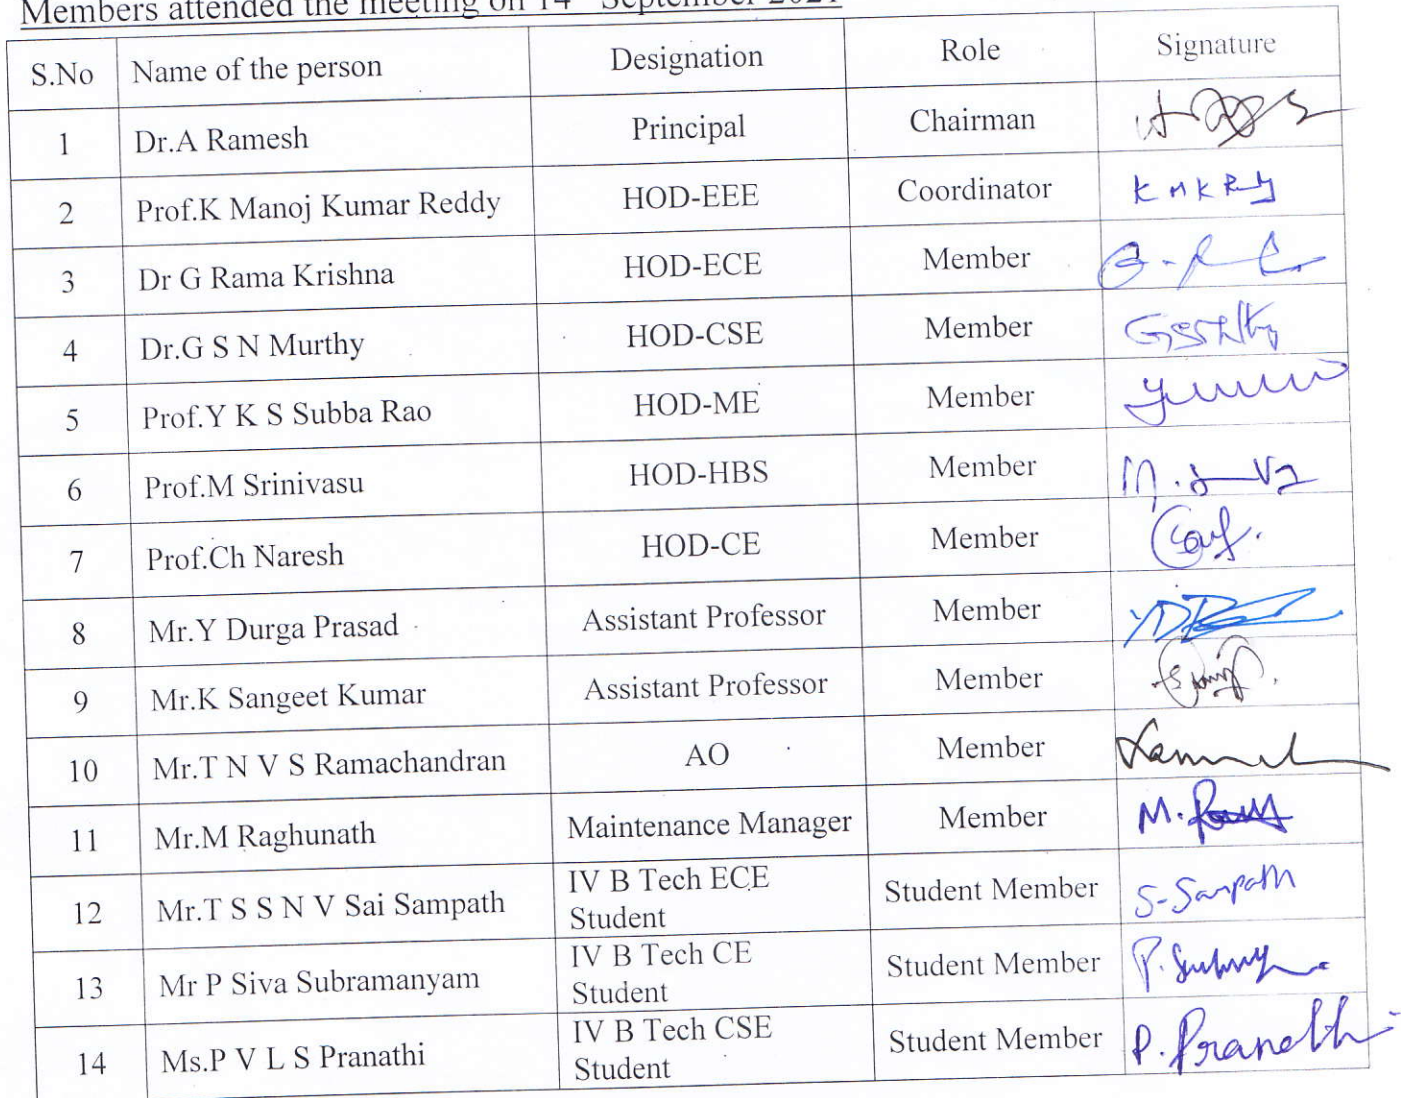 Members attended the meeting on 14th September 2021
S.No Name of the person Designation Role Signature
1 Dr.A Ramesh Principal Chairman
2 Prof.K Manoj Kumar Reddy HOD-EEE Coordinator K M K Reddy
3 Dr G Rama Krishna HOD-ECE Member
4 Dr.G S N Murthy HOD-CSE Member
5 Prof.Y K S Subba Rao HOD-ME Member
6 Prof.M Srinivasu HOD-HBS Member
7 Prof.Ch Naresh HOD-CE Member
8 Mr.Y Durga Prasad Assistant Professor Member
9 Mr.K Sangeet Kumar Assistant Professor Member
10 Mr.T N V S Ramachandran AO Member
11 Mr.M Raghunath Maintenance Manager Member
12 Mr.T S S N V Sai Sampath IV B Tech ECE Student Member S-Sampath
Student
13 Mr P Siva Subramanyam IV B Tech CE Student Member
Student
14 Ms.P V L S Pranathi IV B Tech CSE Student Member P. Pranathi
Student